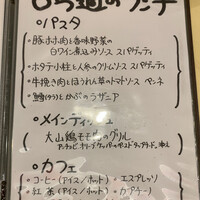 ○パスタ
・豚ホホ肉と香味野菜の
白ワイン煮込みのソース スパゲッティ
・ホタテ小柱と人参のクリームソース スパゲッティ
・牛挽き肉とほうれん草のトマトソース ペンネ
・鱈とかぶのラザニア
○メインディッシュ
大山鶏モモ肉のグリル
○カフェ
・コーヒー(アイス/ホット) ・エスプレッソ
・紅茶(アイス/ホット) ・カプチーノ